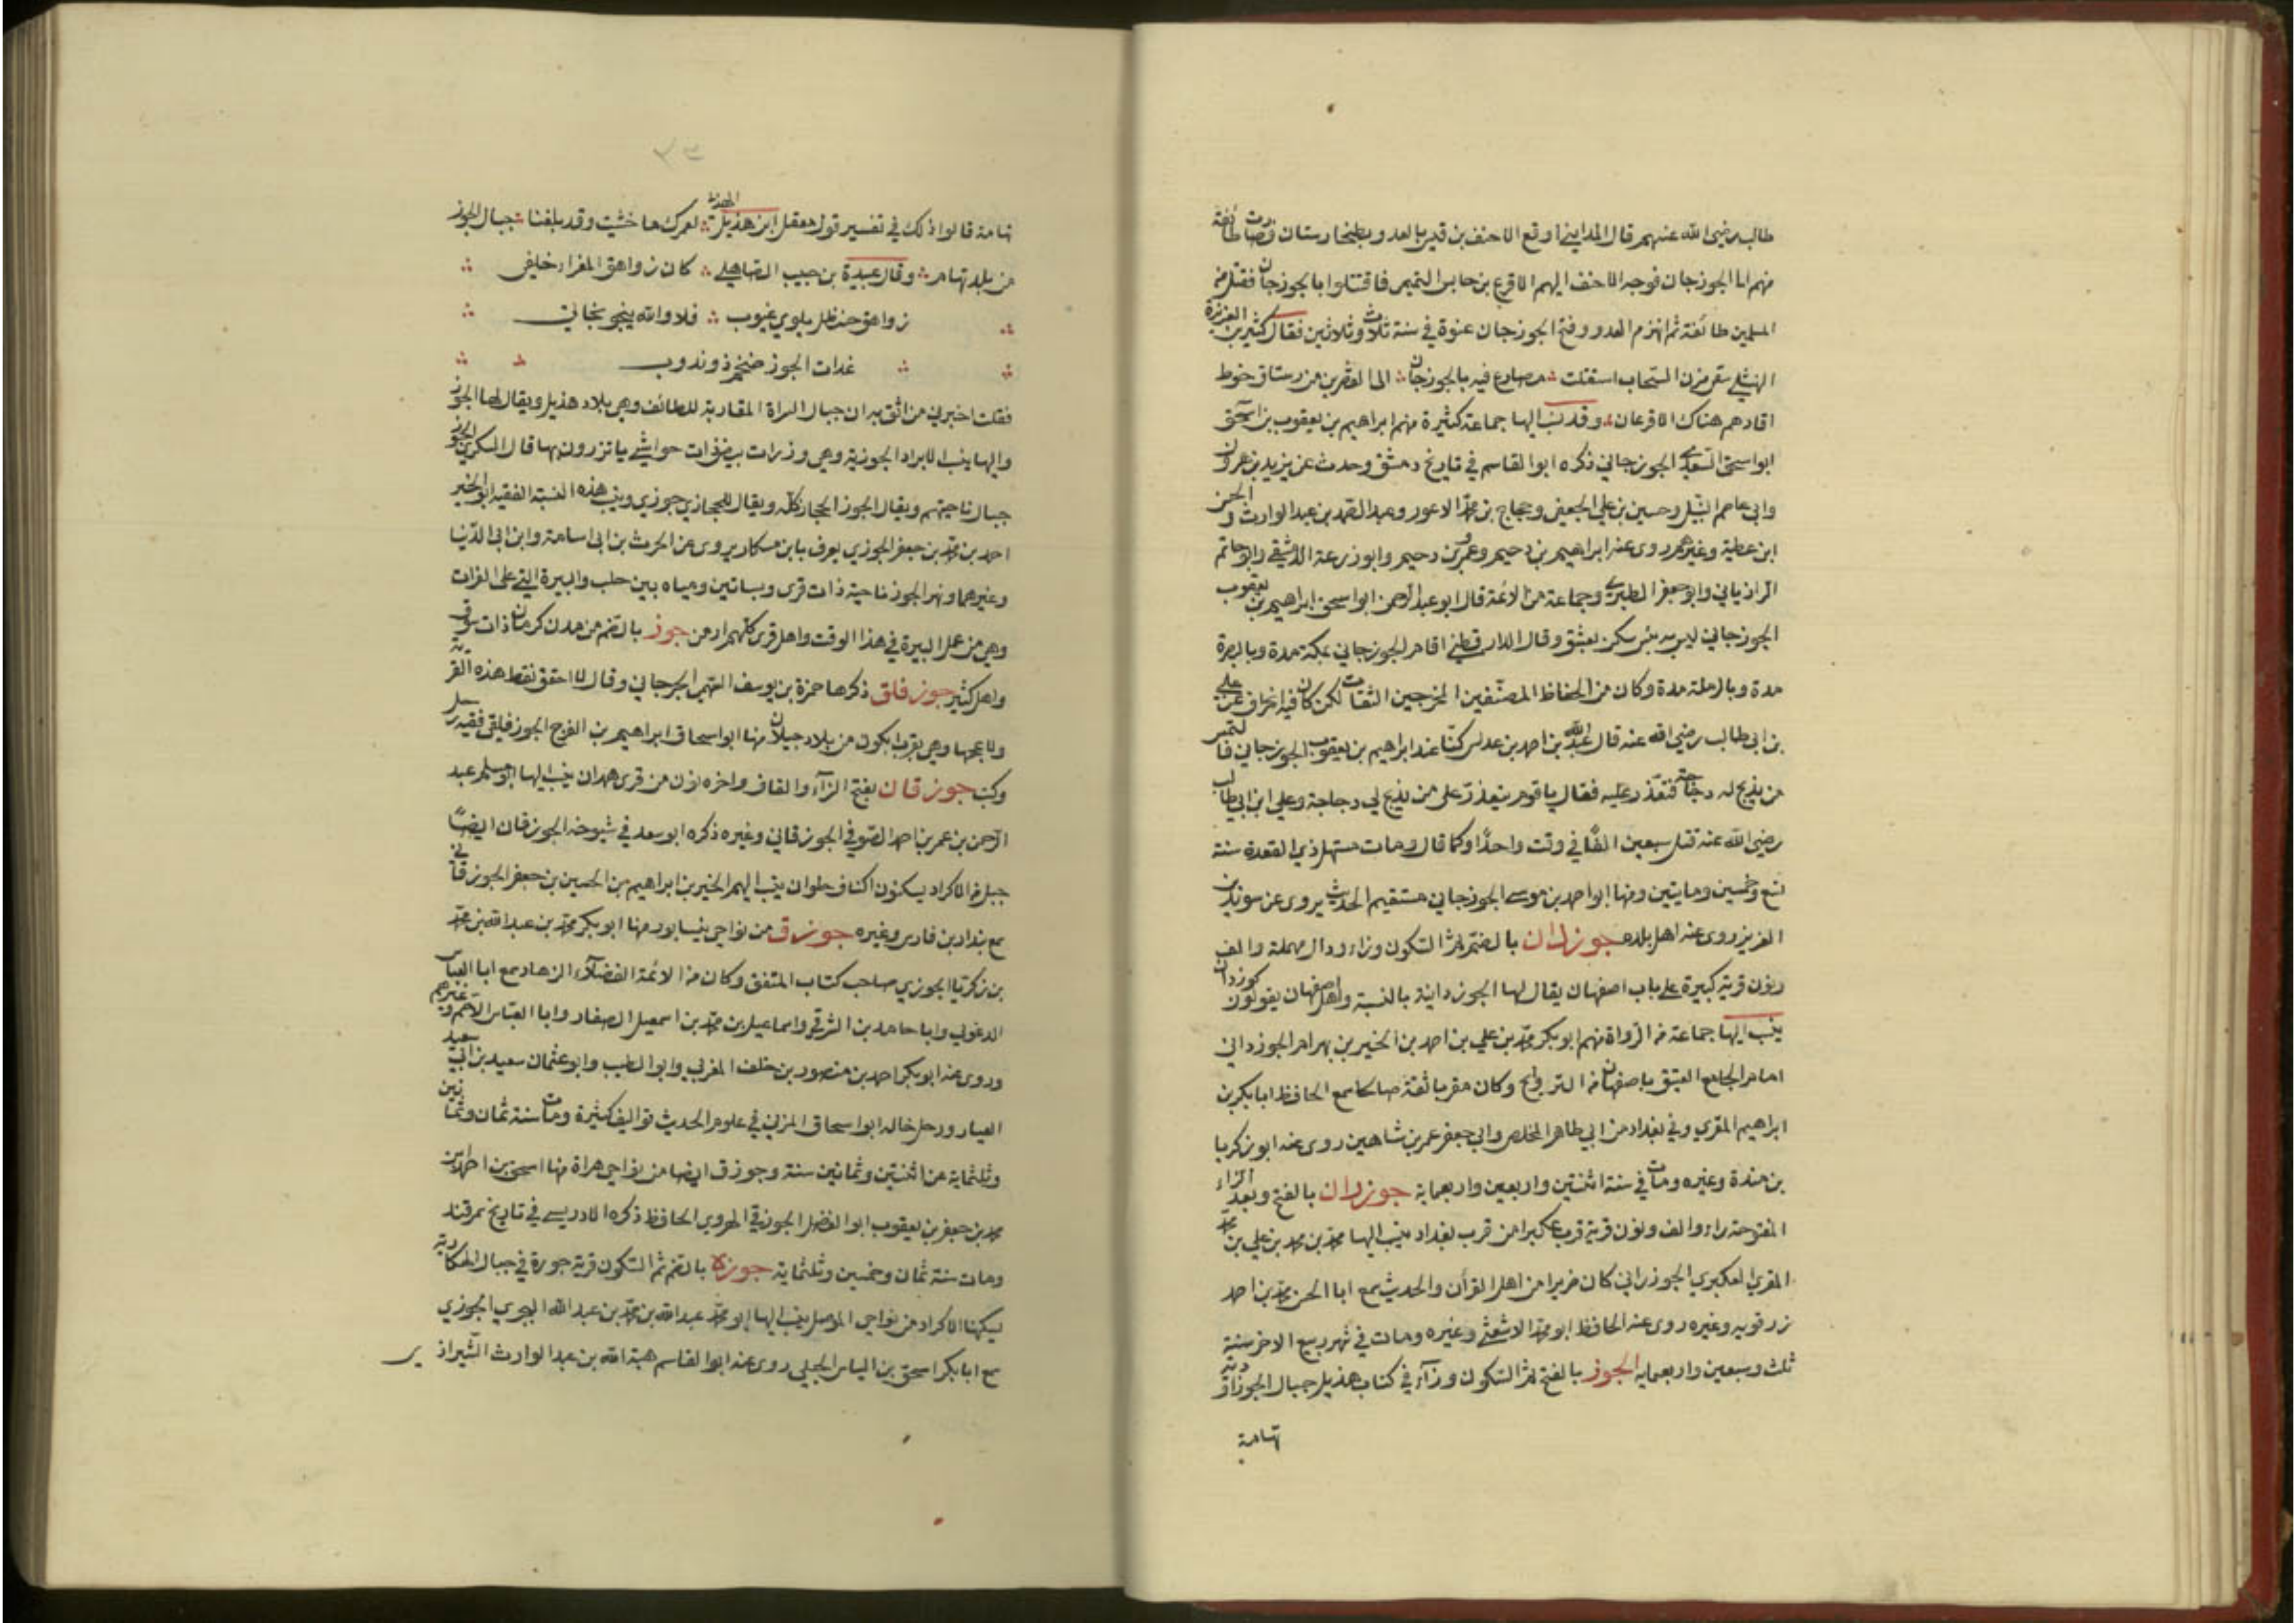 طالب رضي الله عنهم قال المدايني اوقع الاحنف بن قيس بالعدو بطخارستان فصارت طائفة
منهم الى الجوزجان فوجه الاحنف اليهم الاقرع بن حابس التميمي فاقتتلوا بالجوزجان فقتل من
المسلمين طائفة ثم انهزم العدو وفتح الجوزجان عنوة في سنة ثلاث وثلاثين فقال كثير بن الغريزة
النهشلي سقى مزن السحاب استقلت مصارع فتية بالجوزجان الى القصرين من رستاق خوط
اقادهم هناك الاقرعان وقد نسب اليها جماعة كثيرة منهم ابراهيم بن يعقوب بن اسحق
ابو اسحق السعدي الجوزجاني ذكره ابو القاسم في تاريخ دمشق وحدث عن يزيد بن هرون
وابي عاصم النبيل وحسين بن علي الجعفي وحجاج بن محمد الاعور وعبد الصمد بن عبد الوارث والحسن
ابن عطية وغيرهم روى عنه ابراهيم بن دحيم وعمرو بن دحيم وابو زرعة الدمشقي وابو حاتم
الرازيان وابو جعفر الطبري وجماعة من الائمة قال ابو عبد الرحمن ابو اسحق ابراهيم بن يعقوب
الجوزجاني ليس به باس سكن دمشق وقال الدارقطني اقام الجوزجاني بمكة مدة وبالبصرة
مدة وبالرملة مدة وكان من الحفاظ المصنفين المخرجين الثقات لكن كان فيه انحراف عن علي
بن ابي طالب رضي الله عنه قال عبد الله بن احمد بن عدس كنا عند ابراهيم بن يعقوب الجوزجاني فالتمس
من يذبح له دجاجة فتعذر عليه فقال يا قوم يتعذر علي من يذبح لي دجاجة وعلي ابن ابي طالب
رضي الله عنه قتل سبعين الفا في وقت واحدا وكما قال ومات مستهل ذي القعدة سنة
تسع وخمسين ومايتين ومنها ابو احمد بن موسى الجوزجاني مستقيم الحديث يروى عن سويد بن
العزيز روى عنه اهل بلده جوزدان بالضم ثم السكون وزاء ودال مهملة والف
ونون قرية كبيرة على باب اصفهان يقال لها الجوزدانية بالنسبة واهل اصفهان يقولون كوزدان
ينسب اليها جماعة من الرواة منهم ابو بكر محمد بن علي بن احمد بن الحسين بن بهرام الجوزداني
امام الجامع العتيق باصفهان في التراويح وكان مقريا ثقة صالحا سمع الحافظ ابا بكر بن
ابراهيم المقري وفي بغداد من ابي طاهر المخلص وابي جعفر عمر بن شاهين روى عنه ابو زكريا
بن مندة وغيره ومات في سنة اثنتين واربعين واربعماية جوزران بالفتح وبعد الزاء
المفتوحة راء والف ونون قرية قرب عكبرا من قرب بغداد ينسب اليها محمد بن محمد بن علي بن محمد
المقري العكبري الجوزراني كان ضريرا من اهل القرأن والحديث سمع ابا الحسن محمد بن احمد
زرقويه وغيره روى عنه الحافظ ابو محمد الاشعثي وغيره ومات في شهر ربيع الاخر سنة
ثلث وسبعين واربعمايه الجوز بالفتح ثم السكون وزآء في كتاب هذيل جبال الجوز اودية
تهامة
تهامة قالوا ذلك في تفسير قول معقل ابن هذيل الهذلي لعمرك ما خشيت وقد بلغنا جبال الجوز
من بلد تهام وقال عبيدة بن حبيب الصاهلي كان زواهق المغراء خلفي
زواهق حنظل بلوى عيوب فلا والله ينجو نجاتي
غداة الجوز ضخم ذو ندوب
فقلت اخبرني من اثق به ان جبال السراة المقاربة للطائف وهي بلاد هذيل ويقال لها الجوز
واليها ينسب الابراد الجوزية وهي وزرات بيض ذات حواشي ياتزرون بها قال السكري الجوز
جبال ناحيتهم ويقال الجوز الحجاز كله ويقال للحجازي جوزي وينسب هذه النسبة الفقيه ابو الخير
احمد بن محمد بن جعفر الجوزي يعرف بابن مسكار يروى عن الحرث بن ابي اسامة وابن ابي الدنيا
وغيرهما ونهر الجوز ناحية ذات قرى وبساتين ومياه بين حلب والبيرة التي على الفرات
وهي من عمل البيرة في هذا الوقت واهل قرى كلهم ارمن جوز بالضم من مدن كرمان ذات سوق
واهل كثير جوز فلق ذكرها حمزة بن يوسف السهمي الجرجاني وقال لا احقق نقط هذه القرية
ولا عجمها وهي بقرب ابكون من بلاد جيلان منها ابو اسحاق ابراهيم بن الفرج الجوزفلقي فقيه رحل
وكتب جوزقان بفتح الزآء والقاف واخره نون من قرى همدان ينسب اليها ابو مسلم عبد
الرحمن بن عمر بن احمد الصوفي الجوزقاني وغيره ذكره ابو سعد في شيوخه الجوزقان ايضا
جبل من الاكراد يسكنون اكناف حلوان ينسب اليهم الحسين بن ابراهيم بن الحسين بن جعفر الجوزقاني
سمع بندار بن فارس وغيره جوزق من نواحي نيسابور منها ابو بكر محمد بن عبد الله بن محمد
بن زكريا الجوزي صاحب كتاب المتفق وكان من الائمة الفضلاء الزهاد سمع ابا العباس
الدغولي وابا حامد بن الشرقي واسماعيل بن محمد بن اسمعيل الصفار وابا العباس الاصم وغيرهم
وروى عنه ابو بكر احمد بن منصور بن خلف المغربي وابو الطيب وابو عثمان سعيد بن ابي سعيد
العيار ورحل خاله ابو اسحاق المزني في علوم الحديث تواليف كثيرة ومات سنة ثمان وثمانين
وثلثماية من اثنتين وثمانين سنة وجوزق ايضا من نواحي هراة منها اسحق بن احمد بن
محمد بن جعفر بن يعقوب ابو الفضل الجوزقي الهروي الحافظ ذكره الادريسي في تاريخ سمرقند
ومات سنة ثمان وخمسين وثلثماية جوزة بالضم ثم السكون قرية جوزة في جبال الهكارية
يسكنها الاكراد من نواحي الموصل ينسب اليها ابو محمد عبد الله بن محمد بن عبد الله البحري الجوزي
سمع ابا بكر اسحق بن الياس الجبلي روى عنه ابو القاسم هبة الله بن عبد الوارث الشيرازي